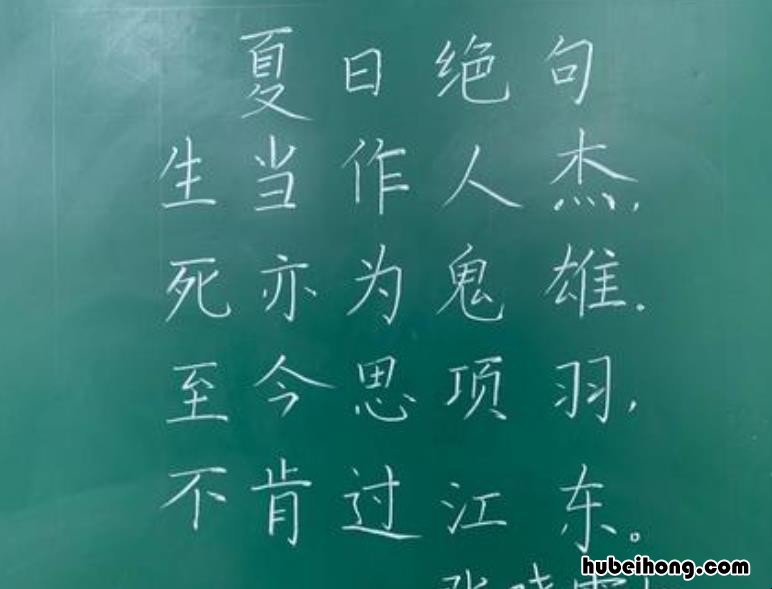 夏日绝句
生当作人杰,
死亦为鬼雄.
至今思项羽,
不肯过江东。
hubeihong.com